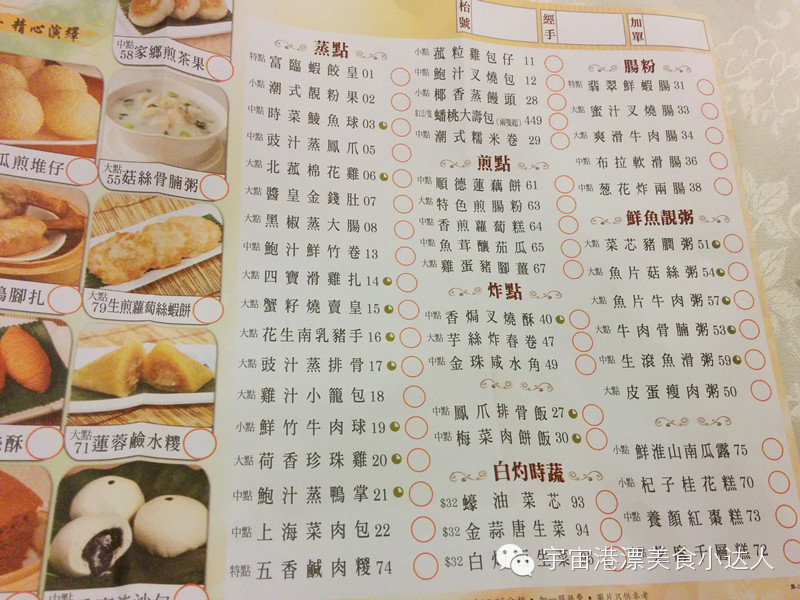 精心演繹
枱號
經手
加單
中點
58家鄉煎茶果
瓜煎堆仔
大點
55菇絲骨腩粥
鴨腳扎
大點
79生煎蘿蔔絲蝦餅
酥
大點
71蓮蓉鹼水糭
中點
沙包
蒸點
特點 富臨蝦餃皇 01
小點 潮式靚粉果 02
中點 時菜鯪魚球 03
中點 豉汁蒸鳳爪 05
大點 北菰棉花雞 06
大點 醬皇金錢肚 07
大點 黑椒蒸大腸 08
中點 鮑汁鮮竹卷 13
大點 四寶滑雞扎 14
大點 蟹籽燒賣皇 15
大點 花生南乳豬手 16
大點 豉汁蒸排骨 17
大點 雞汁小籠包 18
小點 鮮竹牛肉球 19
大點 荷香珍珠雞 20
中點 鮑汁蒸鴨掌 21
中點 上海菜肉包 22
特點 五香鹹肉糭 74
小點 菰粒雞包仔 11
中點 鮑汁叉燒包 12
小點 椰香蒸饅頭 28
$12/隻 蟠桃大壽包(兩隻起) 449
中點 潮式糯米卷 29
煎點
中點 順德蓮藕餅 61
大點 特色煎腸粉 63
中點 香煎蘿蔔糕 64
中點 魚茸釀茄瓜 65
大點 雞蛋豬腳薑 67
炸點
中點 香焗叉燒酥 40
大點 芋絲炸春卷 47
中點 金珠咸水角 49
中點 鳳爪排骨飯 27
中點 梅菜肉餅飯 30
白灼時蔬
$32 蠔油菜芯 93
$32 金蒜唐生菜 94
$32 白灼 生菜
腸粉
特點 翡翠鮮蝦腸 31
大點 蜜汁叉燒腸 33
大點 爽滑牛肉腸 34
中點 布拉軟滑腸 36
中點 葱花炸兩腸 38
鮮魚靚粥
大點 菜芯豬膶粥 51
大點 魚片菇絲粥 54
大點 魚片牛肉粥 57
大點 牛肉骨腩粥 53
中點 生滾魚滑粥 59
大點 皮蛋瘦肉粥 50
小點 鮮淮山南瓜露 75
小點 杞子桂花糕 70
中點 養顏紅棗糕 73
千層糕 72
宇宙港漂美食小达人